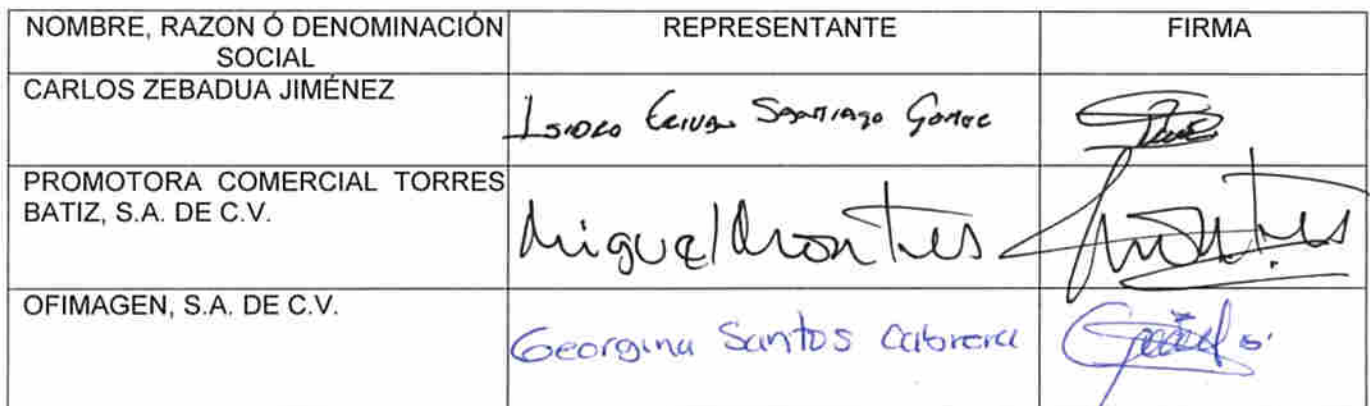 NOMBRE, RAZON Ó DENOMINACIÓN SOCIAL REPRESENTANTE FIRMA
CARLOS ZEBADUA JIMÉNEZ
Isidro Santiago
PROMOTORA COMERCIAL TORRES
BATIZ, S.A. DE C.V.
Miguel Montes
OFIMAGEN, S.A. DE C.V.
Georgina Santos Cabrera